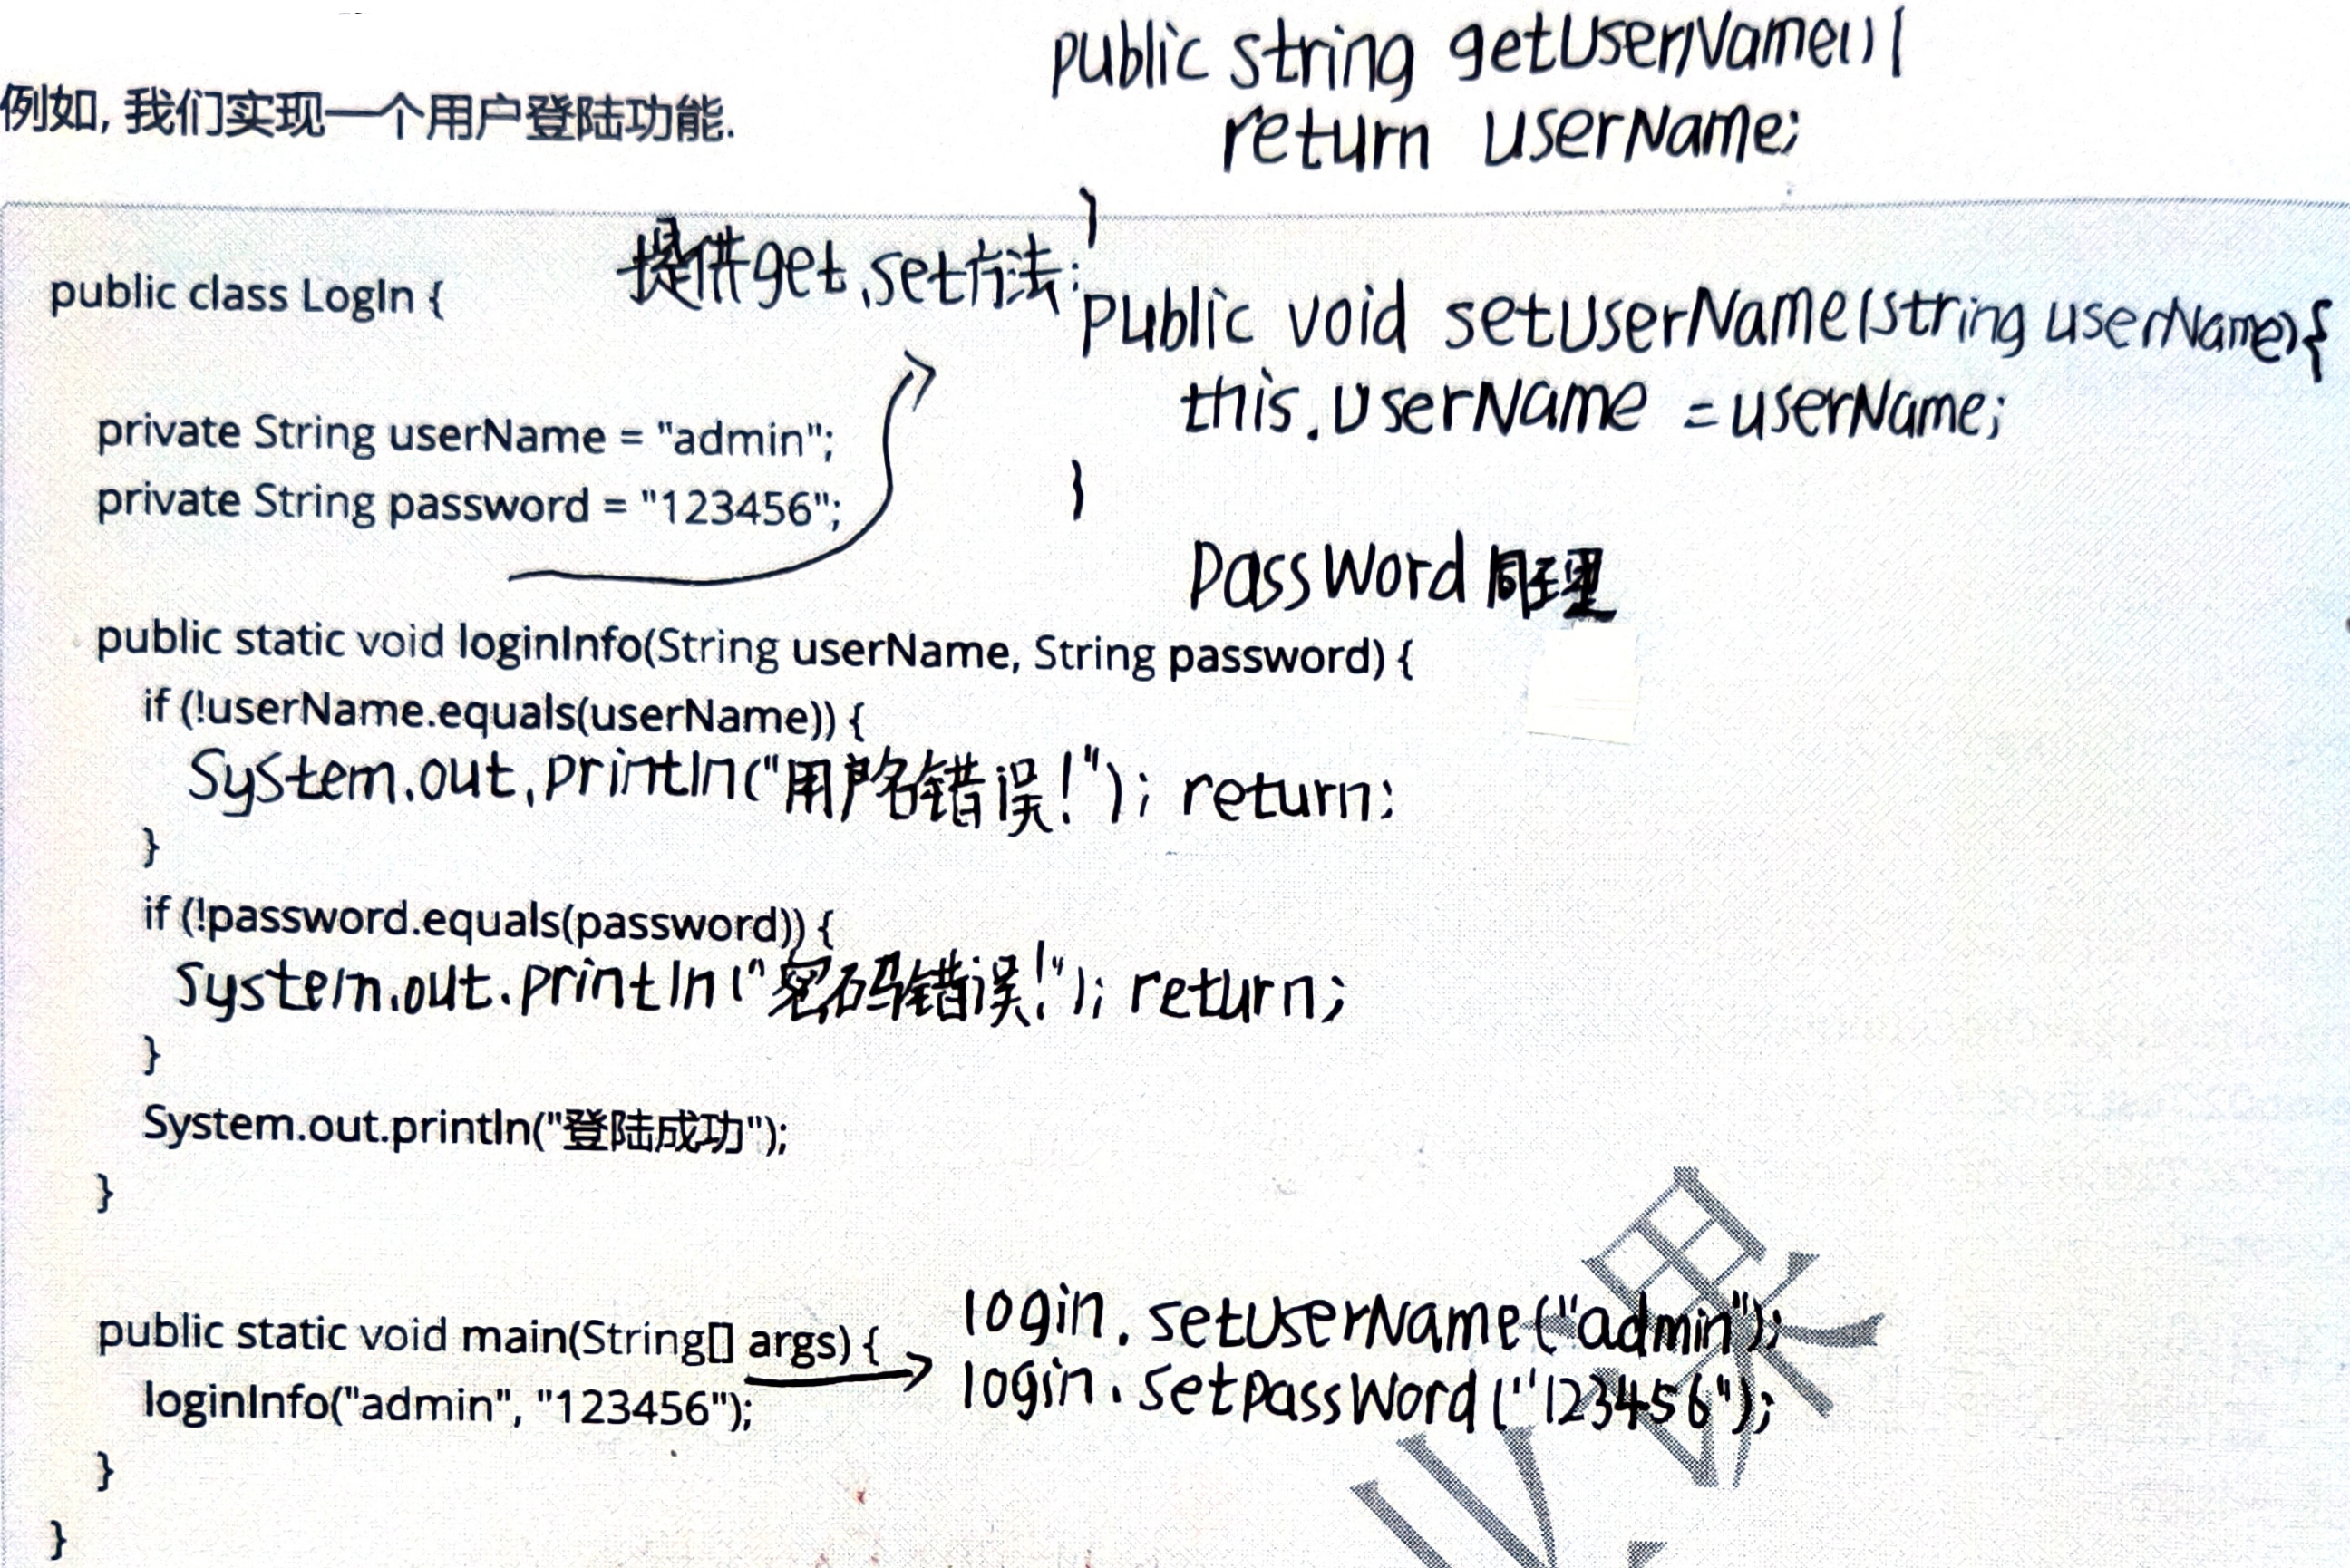 public string getUserName(){
例如, 我们实现一个用户登陆功能.
return userName;
}
提供get、set方法:
public class LogIn {
public void setUserName(string userName){
this.userName = userName;
private String userName = "admin";
}
private String password = "123456";
passWord 同理
public static void loginInfo(String userName, String password) {
if (!userName.equals(userName)) {
System.out.println("用户名错误!"); return;
}
if (!password.equals(password)) {
System.out.println("密码错误!"); return;
}
System.out.println("登陆成功");
}
public static void main(String[] args) {
login.setUserName("admin");
loginInfo("admin", "123456");
login.setpassWord("123456");
}
}